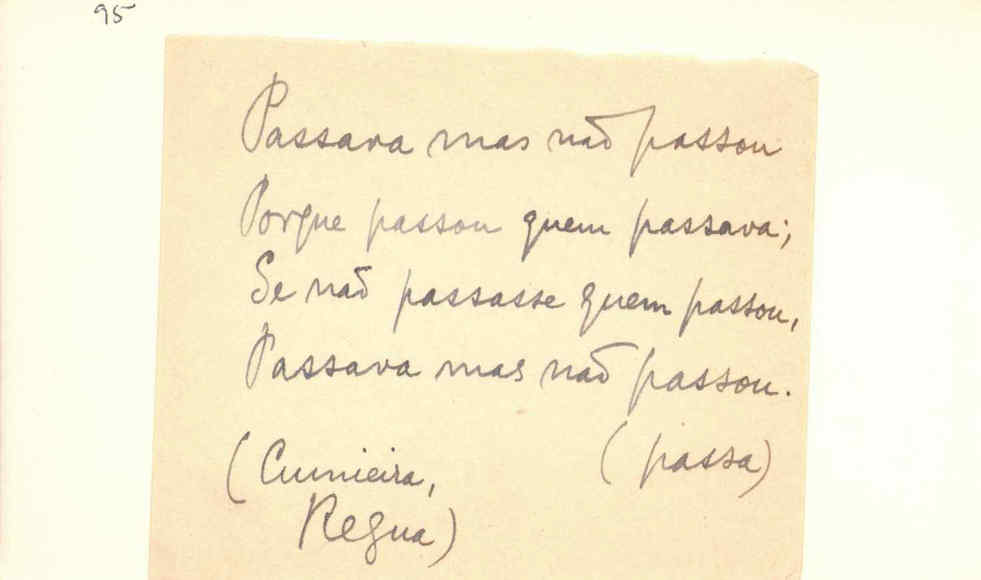 95
Passava mas não passou
Porque passou quem passava;
Se não passasse quem passou,
Passava mas não passou.
(Cumieira, (passa)
Regua)